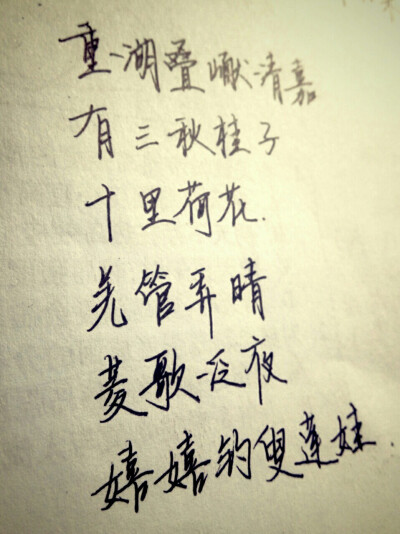 重湖叠巘清嘉
有三秋桂子
十里荷花.
羌管弄晴
菱歌泛夜
嬉嬉钓叟莲娃.